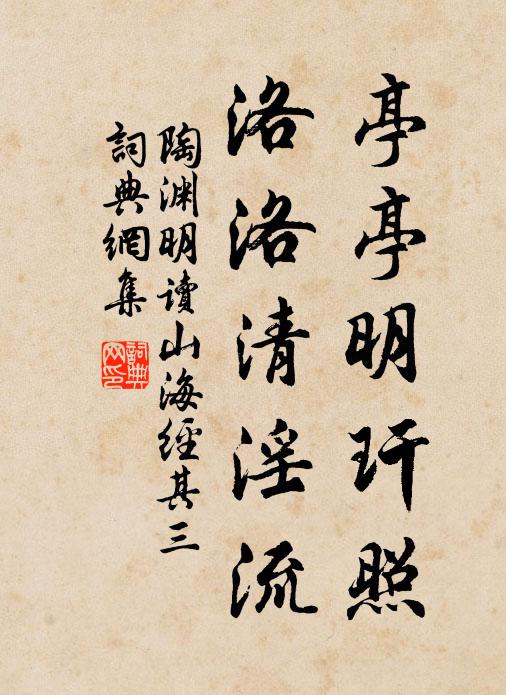 亭亭明玕照
洛洛清淫流
陶渊明读山海經其三
詞典網集
詞典
网印